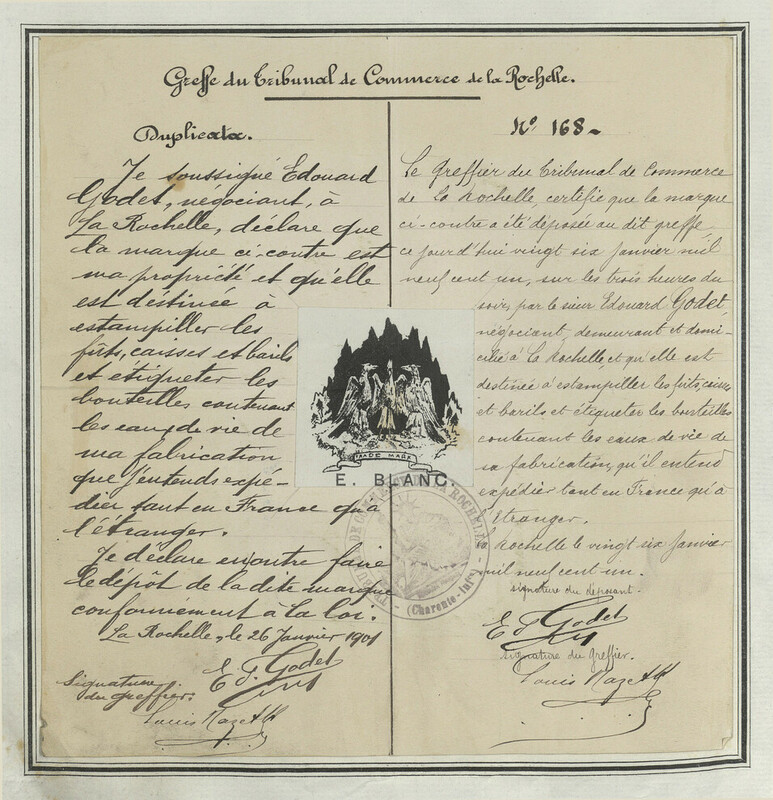 Greffe du Tribunal de Commerce de la Rochelle.
Duplicata.
Je soussigné Edouard
Godet, négociant, à
La Rochelle, déclare que
la marque ci-contre est
ma propriété et qu'elle
est destinée à
estampiller les
fûts, caisses et barils
et etiqueter les
bouteilles contenant
les eaux de vie de
ma fabrication
que j'entends expé-
dier tant en France qu'à
l'étranger.
Je déclare en outre faire
le dépôt de la dite marque
conformément à la loi.
La Rochelle, le 26 Janvier 1901
E F. Godet
Signature
du greffier.
Louis
TRADE MARK
E. BLANC.
TRIBUNAL DE COMMERCE DE LA ROCHELLE
(Charente-Infre)
No 168-
Le Greffier du Tribunal de Commerce
de La Rochelle, certifie que la marque
ci-contre a été déposée au dit greffe
ce jourd'hui vingt six Janvier mil
neuf cent un, sur les trois heures du
soir, par le sieur Edouard Godet,
négociant, demeurant et domi-
cilié à La Rochelle, et qu'elle est
destinée à estampiller les fûts, caisses
et barils et étiqueter les bouteilles
contenant les eaux de vie de
sa fabrication, qu'il entend
expédier tant en France qu'à
l'étranger.
Rochelle le vingt six Janvier
mil neuf cent un.
signature du déposant.
E F. Godet
signature du Greffier.
Louis